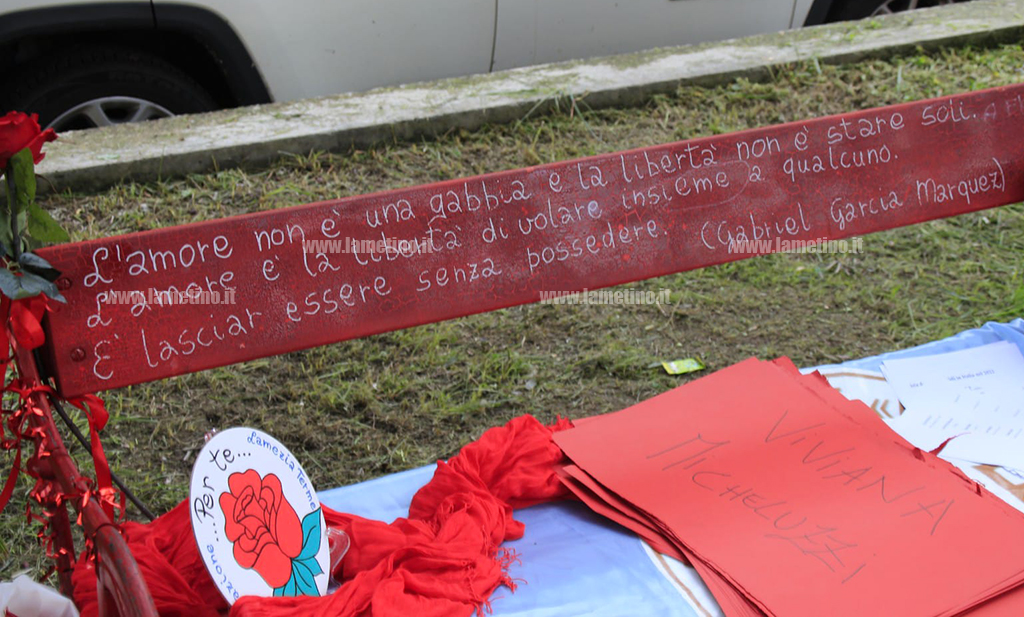 L'amore non è una gabbia e la libertà non è stare soli.
L'amore è la libertà di volare insieme a qualcuno.
E' lasciar essere senza possedere. (Gabriel Garcia Marquez)
www.lametino.it
www.lametino.it
www.lametino.it
www.lametino.it
Per te...
Lamezia Terme
VIVIANA
MICHELUZZI